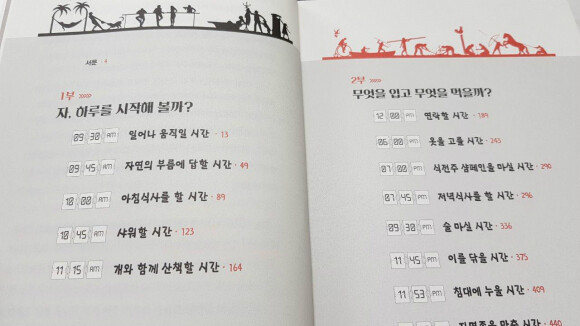 서문 · 4
1부
자, 하루를 시작해 볼까?
09:30 AM 일어나 움직일 시간 · 13
09:45 AM 자연의 부름에 답할 시간 · 49
10:00 AM 아침식사를 할 시간 · 89
10:45 AM 샤워할 시간 · 123
11:15 AM 개와 함께 산책할 시간 · 164
2부
무엇을 입고 무엇을 먹을까?
12:00 PM 연락할 시간 · 189
06:00 PM 옷을 고를 시간 · 243
07:00 PM 식전주 샴페인을 마실 시간 · 290
07:45 PM 저녁식사를 할 시간 · 296
09:30 PM 술 마실 시간 · 336
11:45 PM 이를 닦을 시간 · 375
11:53 PM 침대에 누울 시간 · 409
자명종을 맞출 시간 · 440